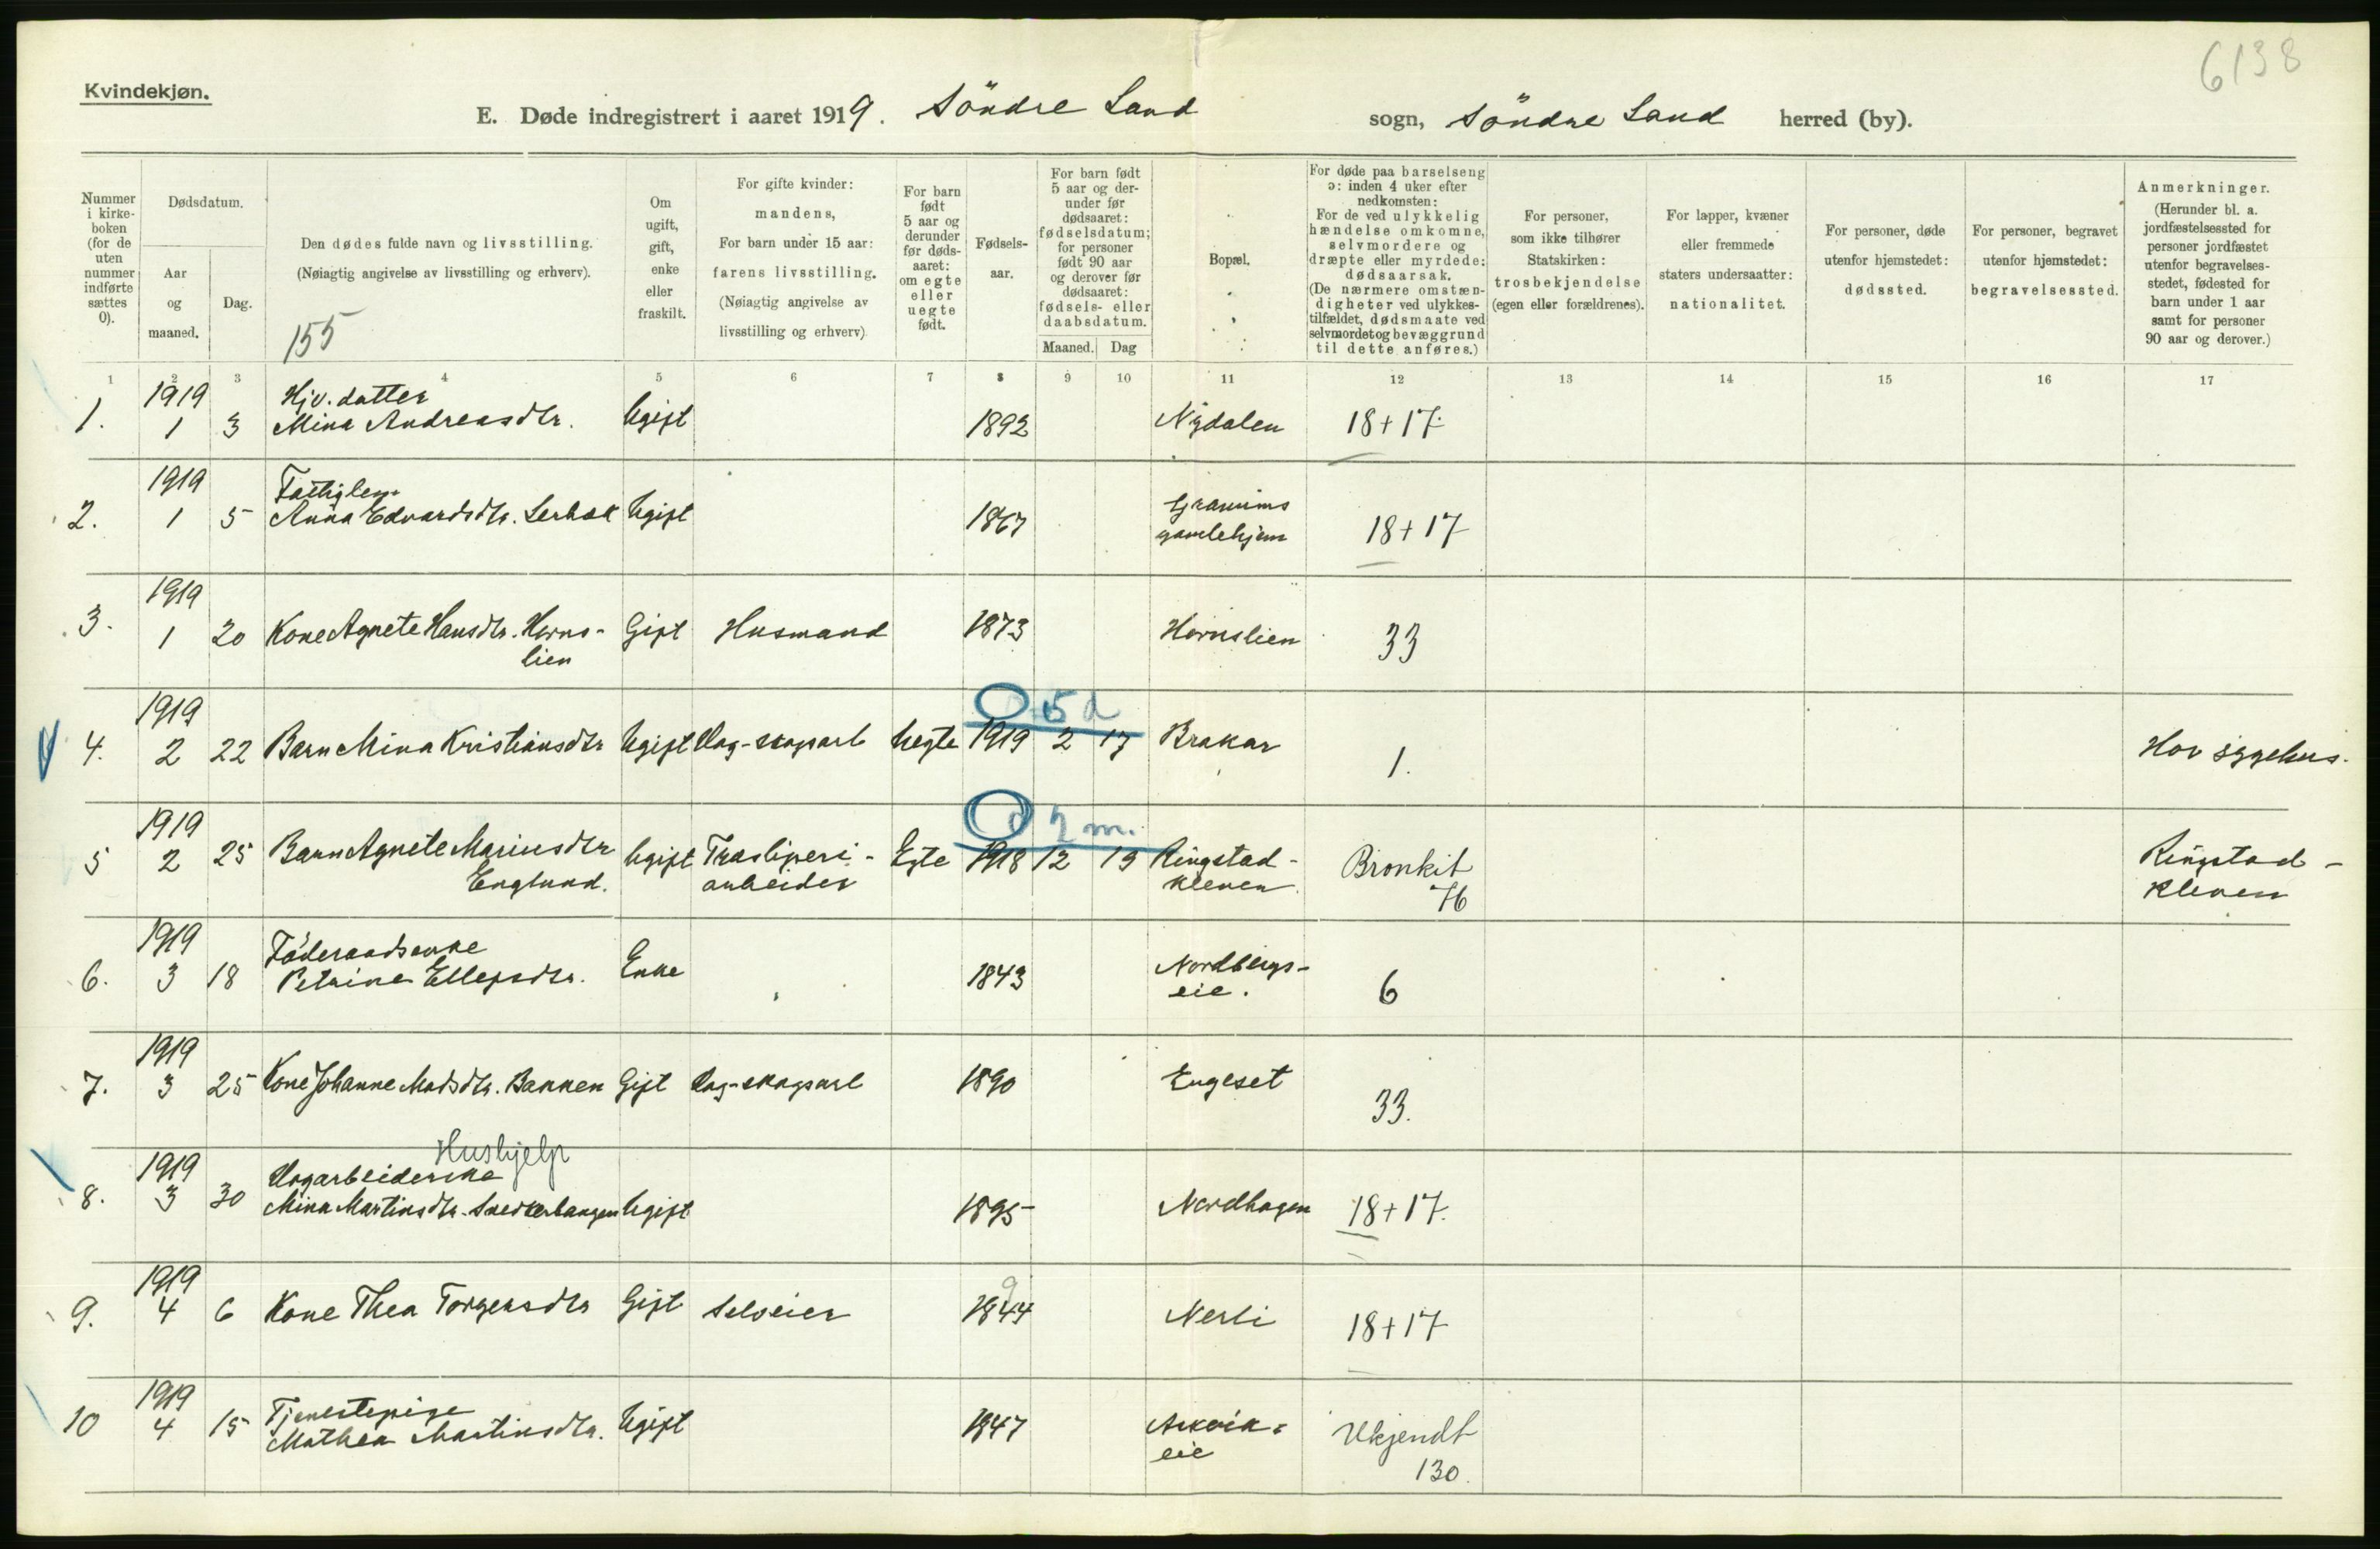 6138
Kvindekjøn.
E. Døde indregistrert i aaret 1919. Söndre Land sogn, Söndre Land herred (by).
Nummer i kirkeboken (for de uten nummer indførte sættes 0).
Dødsdatum.
Aar og maaned.
Dag.
Den dødes fulde navn og livsstilling.
(Nøiagtig angivelse av livsstilling og erhverv).
155
Om ugift, gift, enke eller fraskilt.
For gifte kvinder: mandens,
For barn under 15 aar: farens livsstilling.
(Nøiagtig angivelse av livsstilling og erhverv)
For barn født 5 aar og derunder før dødsaaret: om egte eller uegte født.
Fødselsaar.
For barn født 5 aar og derunder før dødsaaret: fødselsdatum; for personer født 90 aar og derover før dødsaaret: fødsels- eller daabsdatum.
Maaned. Dag
Bopæl.
For døde paa barselseng ɔ: inden 4 uker efter nedkomsten:
For de ved ulykkelig hændelse omkomne, selvmordere og dræpte eller myrdede: dødsaarsak.
(De nærmere omstændigheter ved ulykkestilfældet, dødsmaate ved selvmordet og bevæggrund til dette anføres.)
For personer, som ikke tilhører Statskirken: trosbekjendelse (egen eller forældrenes).
For lapper, kvæner eller fremmede staters undersaatter: nationalitet.
For personer, døde utenfor hjemstedet: dødssted.
For personer, begravet utenfor hjemstedet: begravelsessted.
Anmerkninger.
(Herunder bl. a. jordfæstelsessted for personer jordfæstet utenfor begravelsesstedet, fødested for barn under 1 aar samt for personer 90 aar og derover.)
1 2 3 4 5 6 7 8 9 10 11 12 13 14 15 16 17
1919 Hjv. datter
1. 1 3 Mina Andreasdtr. Ugift 1892 Nydalen 18+17
1919 Fattiglem
2. 1 5 Anna Edvardsdtr. Ugift 1867 gamlehjem 18+17
1919
3. 1 20 Kone Agnete Hansdtr. Horns- Gift Husmand 1873 Hornslien 33
lien
1919 0 5 d
4. 2 22 Barn Mina Kristiansdtr Ugift Dag-skogsarb Uegte 1919 2 17 Brakar 1. Hov sygehus.
1919 0 2 m.
5 2 25 Barn Agnete Mariusdtr Ugift Træsliperi- Egte 1918 12 19 Ringstad- Bronkit Ringstad-
Englund. arbeider kleven 76 kleven
1919 Föderaadsenke
6. 3 18 Petrine Ellefsdtr. Enke 1843 Nordbergs- 6
eie.
1919
7. 3 25 Kone Johanne Madsdtr. Bakken Gift Dag-skogsarb 1890 Engeset 33.
Hushjelp
1919 Dagarbeiderske
8. 3 30 Mina Martinsdtr. Ugift 1895 Nordhagen 18+17.
1919 9
9. 4 6 Kone Thea Torgersdtr Gift Selveier 1844 Nerli 18+17
1919 Tjenestepige
10 4 15 Mathea Martinsdtr. Ugift 1847 Ukjendt
eie 130.